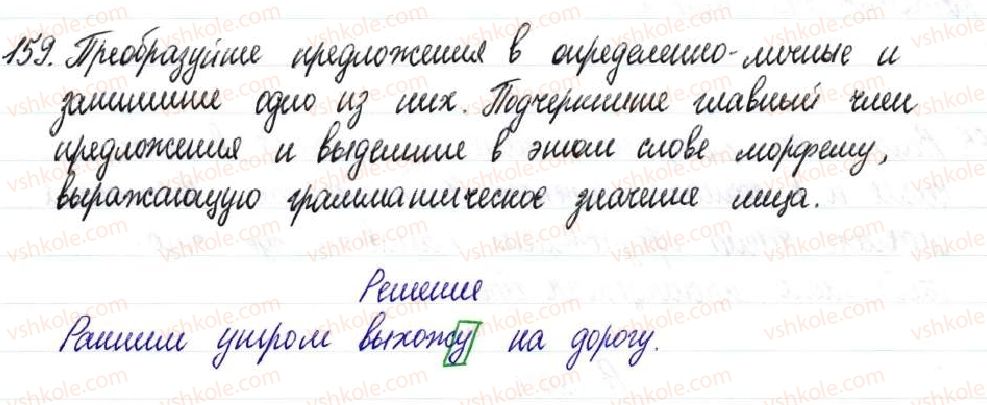 159. Преобразуйте предложения в определенно-личные и
запишите одно из них. Подчеркните главный член
предложения и выделите в этом слове морфему,
выражающую грамматическое значение лица.
Решение
Ранним утром выхожу на дорогу.